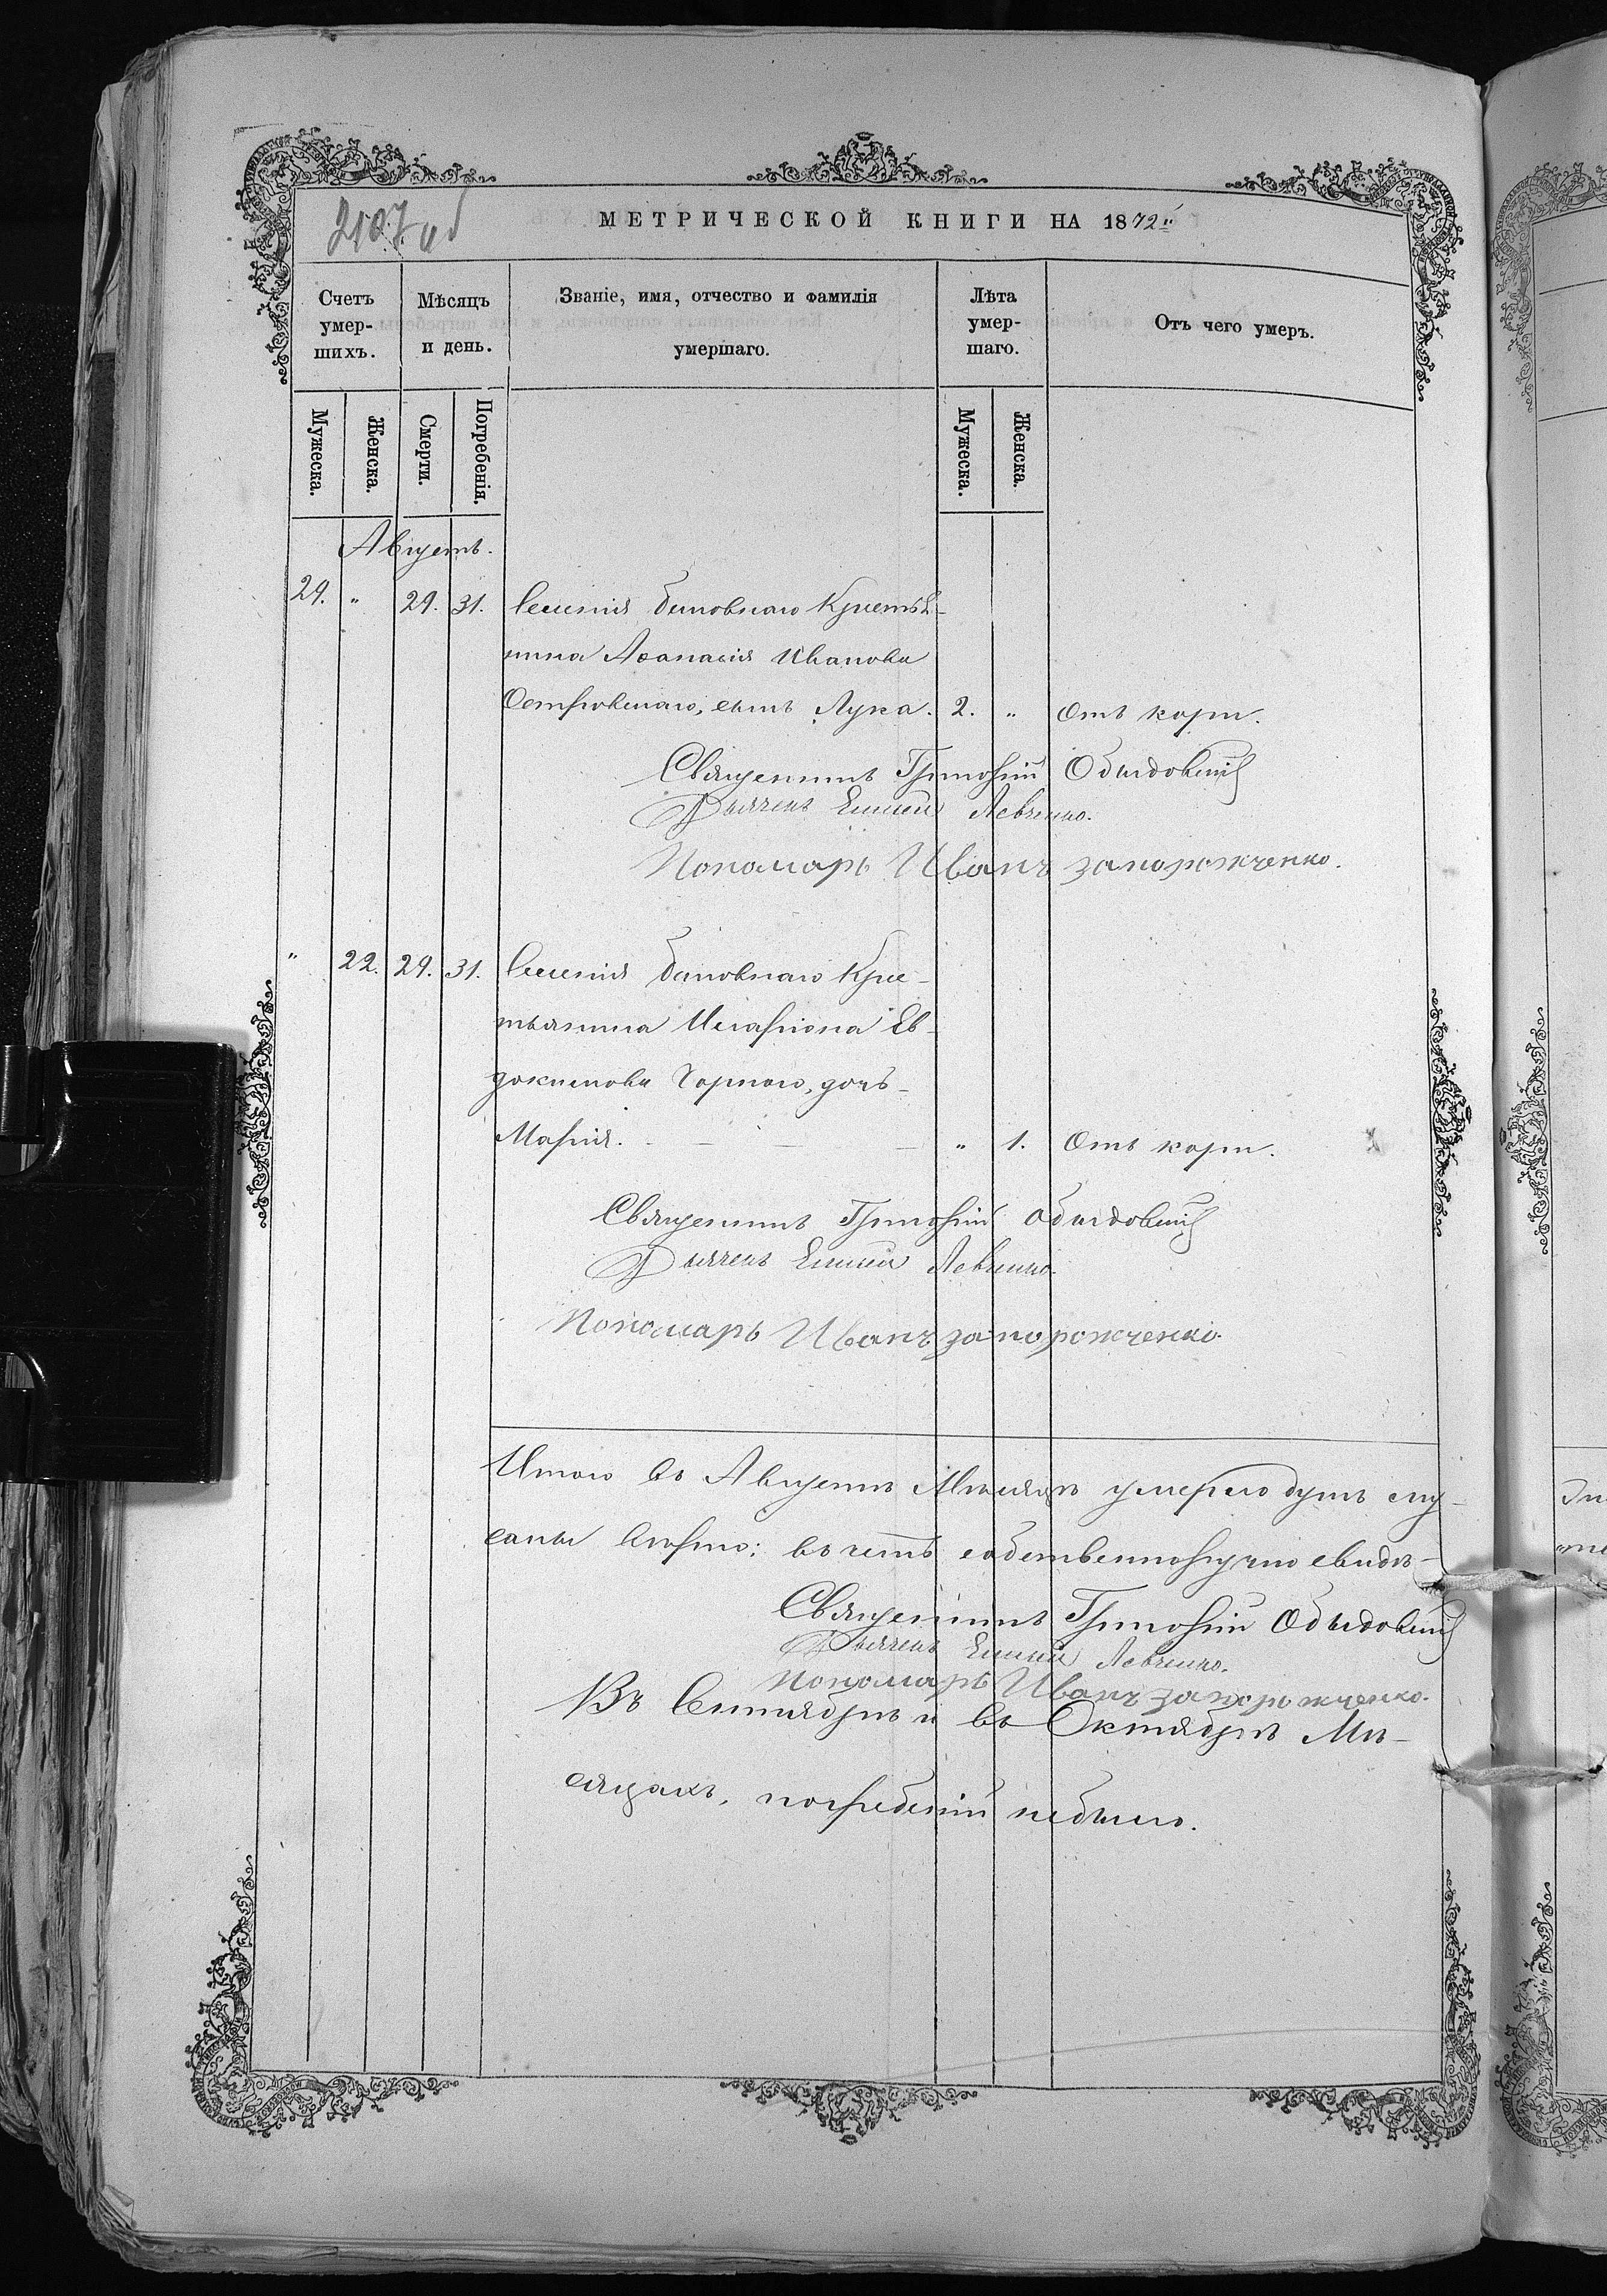 2107 об
МЕТРИЧЕСКОЙ КНИГИ НА 1872й
Счетъ умер-шихъ.
Мѣсяцъ и день.
Званіе, имя, отчество и фамилія умершаго.
Лѣта умер-шаго.
Отъ чего умеръ.
Мужеска. Женска. Смерти. Погребенія. Мужеска. Женска.
Августъ.
29. " 29. 31. Селенія Крестья-
нина Аѳанасія Иванова
Островскаго, сынъ Лука. 2. " Отъ кори.
Священникъ Григорій Обыдовскій
Дьячекъ Левченко.
Пономарь Иванъ запорожченко.
" 22. 29. 31. Селенія Кре-
стьянина Иларіона Ев-
докимова Чорного, дочь
Марія. " 1. Отъ кори.
Священникъ Григорій Обыдовскій
Дьячекъ Левченко.
Пономарь Иванъ запорожченко.
Итого въ Августѣ Мѣсяцѣ умерло душъ
въ чемъ собственноручно свидѣ-
Священникъ Григорій Обыдовскій
Дьячекъ Левченко.
Пономарь Иванъ запорожченко.
Въ Сентябрѣ и въ Октябрѣ Мѣ-
сяцахъ, погребеній небыло.